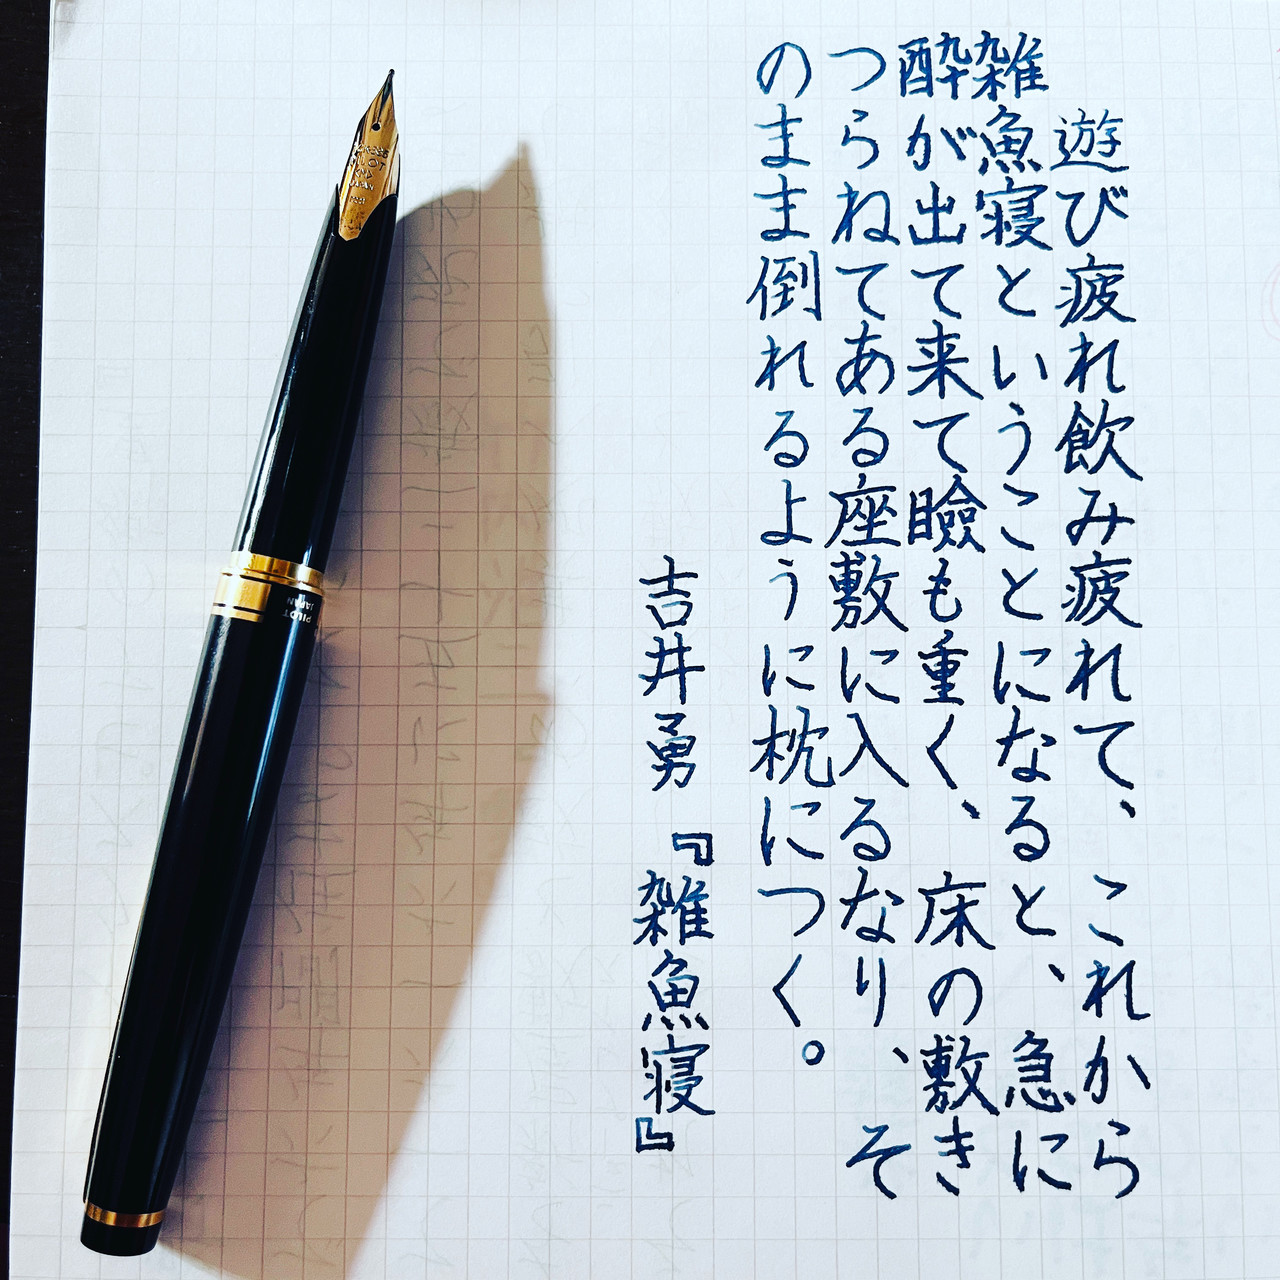 遊び疲れ飲み疲れて、これから
雑魚寝ということになると、急に
酔が出て来て瞼も重く、床の敷き
つらねてある座敷に入るなり、そ
のまま倒れるように枕につく。
吉井勇『雑魚寝』
PILOT
JAPAN
PILOT
JAPAN